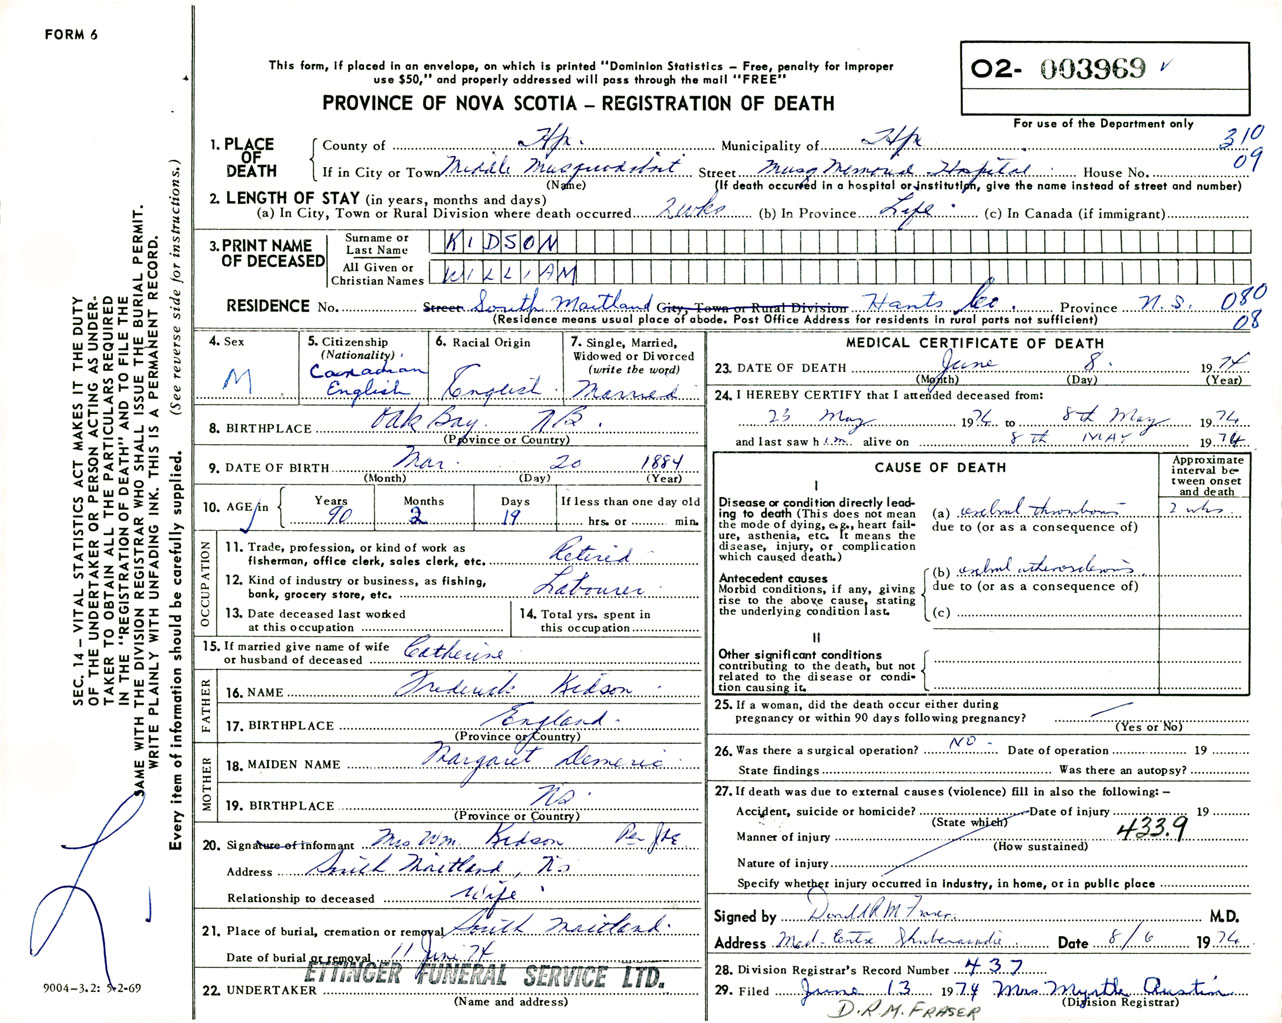 FORM 6
This form, if placed in an envelope, on which is printed "Dominion Statistics – Free, penalty for improper
use $50," and properly addressed will pass through the mail "FREE"
PROVINCE OF NOVA SCOTIA – REGISTRATION OF DEATH
O2- 003969
For use of the Department only
310
09
1. PLACE OF DEATH
County of Hx. Municipality of Hx
If in City or Town Middle Musquodoboit Street Musq Memorial Hospital House No.
(Name) (If death occured in a hospital or institution, give the name instead of street and number)
2. LENGTH OF STAY (in years, months and days)
(a) In City, Town or Rural Division where death occurred 2 wks (b) In Province Life (c) In Canada (if immigrant)
3. PRINT NAME OF DECEASED
Surname or Last Name KIDSON
All Given or Christian Names WILLIAM
RESIDENCE No. Street South Maitland City, Town or Rural Division Hants Co. Province N.S. 080
(Residence means usual place of abode. Post Office Address for residents in rural parts not sufficient) 08
4. Sex M
5. Citizenship (Nationality) Canadian English
6. Racial Origin English
7. Single, Married, Widowed or Divorced (write the word) Married
8. BIRTHPLACE Oak Bay N.B.
(Province or Country)
9. DATE OF BIRTH Mar. 20 1884
(Month) (Day) (Year)
10. AGE in Years 90 Months 2 Days 19 If less than one day old hrs. or min.
OCCUPATION
11. Trade, profession, or kind of work as fisherman, office clerk, sales clerk, etc. Retired
12. Kind of industry or business, as fishing, bank, grocery store, etc. Labourer
13. Date deceased last worked at this occupation
14. Total yrs. spent in this occupation
15. If married give name of wife or husband of deceased Catherine
FATHER
16. NAME Frederick Kidson
17. BIRTHPLACE England
(Province or Country)
MOTHER
18. MAIDEN NAME Margaret
19. BIRTHPLACE NS
(Province or Country)
20. Signature of informant Mrs Wm. Kidson Per
Address South Maitland, NS
Relationship to deceased Wife
21. Place of burial, cremation or removal South Maitland
Date of burial or removal 11 June 74
22. UNDERTAKER ETTINGER FUNERAL SERVICE LTD.
(Name and address)
MEDICAL CERTIFICATE OF DEATH
23. DATE OF DEATH June 8 1974
(Month) (Day) (Year)
24. I HEREBY CERTIFY that I attended deceased from:
23 May 1974 to 8th May 1974
and last saw him alive on 8th MAY 1974
CAUSE OF DEATH
Approximate interval between onset and death
I
Disease or condition directly leading to death (This does not mean the mode of dying, e.g., heart failure, asthenia, etc. It means the disease, injury, or complication which caused death.)
(a) cerebral thrombosis 2 wks
due to (or as a consequence of)
Antecedent causes
Morbid conditions, if any, giving rise to the above cause, stating the underlying condition last.
(b) cerebral atherosclerosis
due to (or as a consequence of)
(c)
II
Other significant conditions
contributing to the death, but not related to the disease or condition causing it.
25. If a woman, did the death occur either during pregnancy or within 90 days following pregnancy?
(Yes or No)
26. Was there a surgical operation? NO Date of operation 19
State findings Was there an autopsy?
27. If death was due to external causes (violence) fill in also the following: –
Accident, suicide or homicide? Date of injury 19
(State which)
Manner of injury 433.9
(How sustained)
Nature of injury
Specify whether injury occurred in industry, in home, or in public place
Signed by Donald R M Fraser M.D.
Address Med. Centre Shubenacadie Date 8/6 1974
28. Division Registrar's Record Number 437
29. Filed June 13 1974 Mrs Myrtle Austin
(Division Registrar)
D.R.M. FRASER
SEC. 14 – VITAL STATISTICS ACT MAKES IT THE DUTY
OF THE UNDERTAKER OR PERSON ACTING AS UNDER-
TAKER TO OBTAIN ALL THE PARTICULARS REQUIRED
IN THE "REGISTRATION OF DEATH" AND TO FILE THE
SAME WITH THE DIVISION REGISTRAR WHO SHALL ISSUE THE BURIAL PERMIT.
WRITE PLAINLY WITH UNFADING INK. THIS IS A PERMANENT RECORD.
Every item of information should be carefully supplied. (See reverse side for instructions.)
9004-3.2: 5-2-69